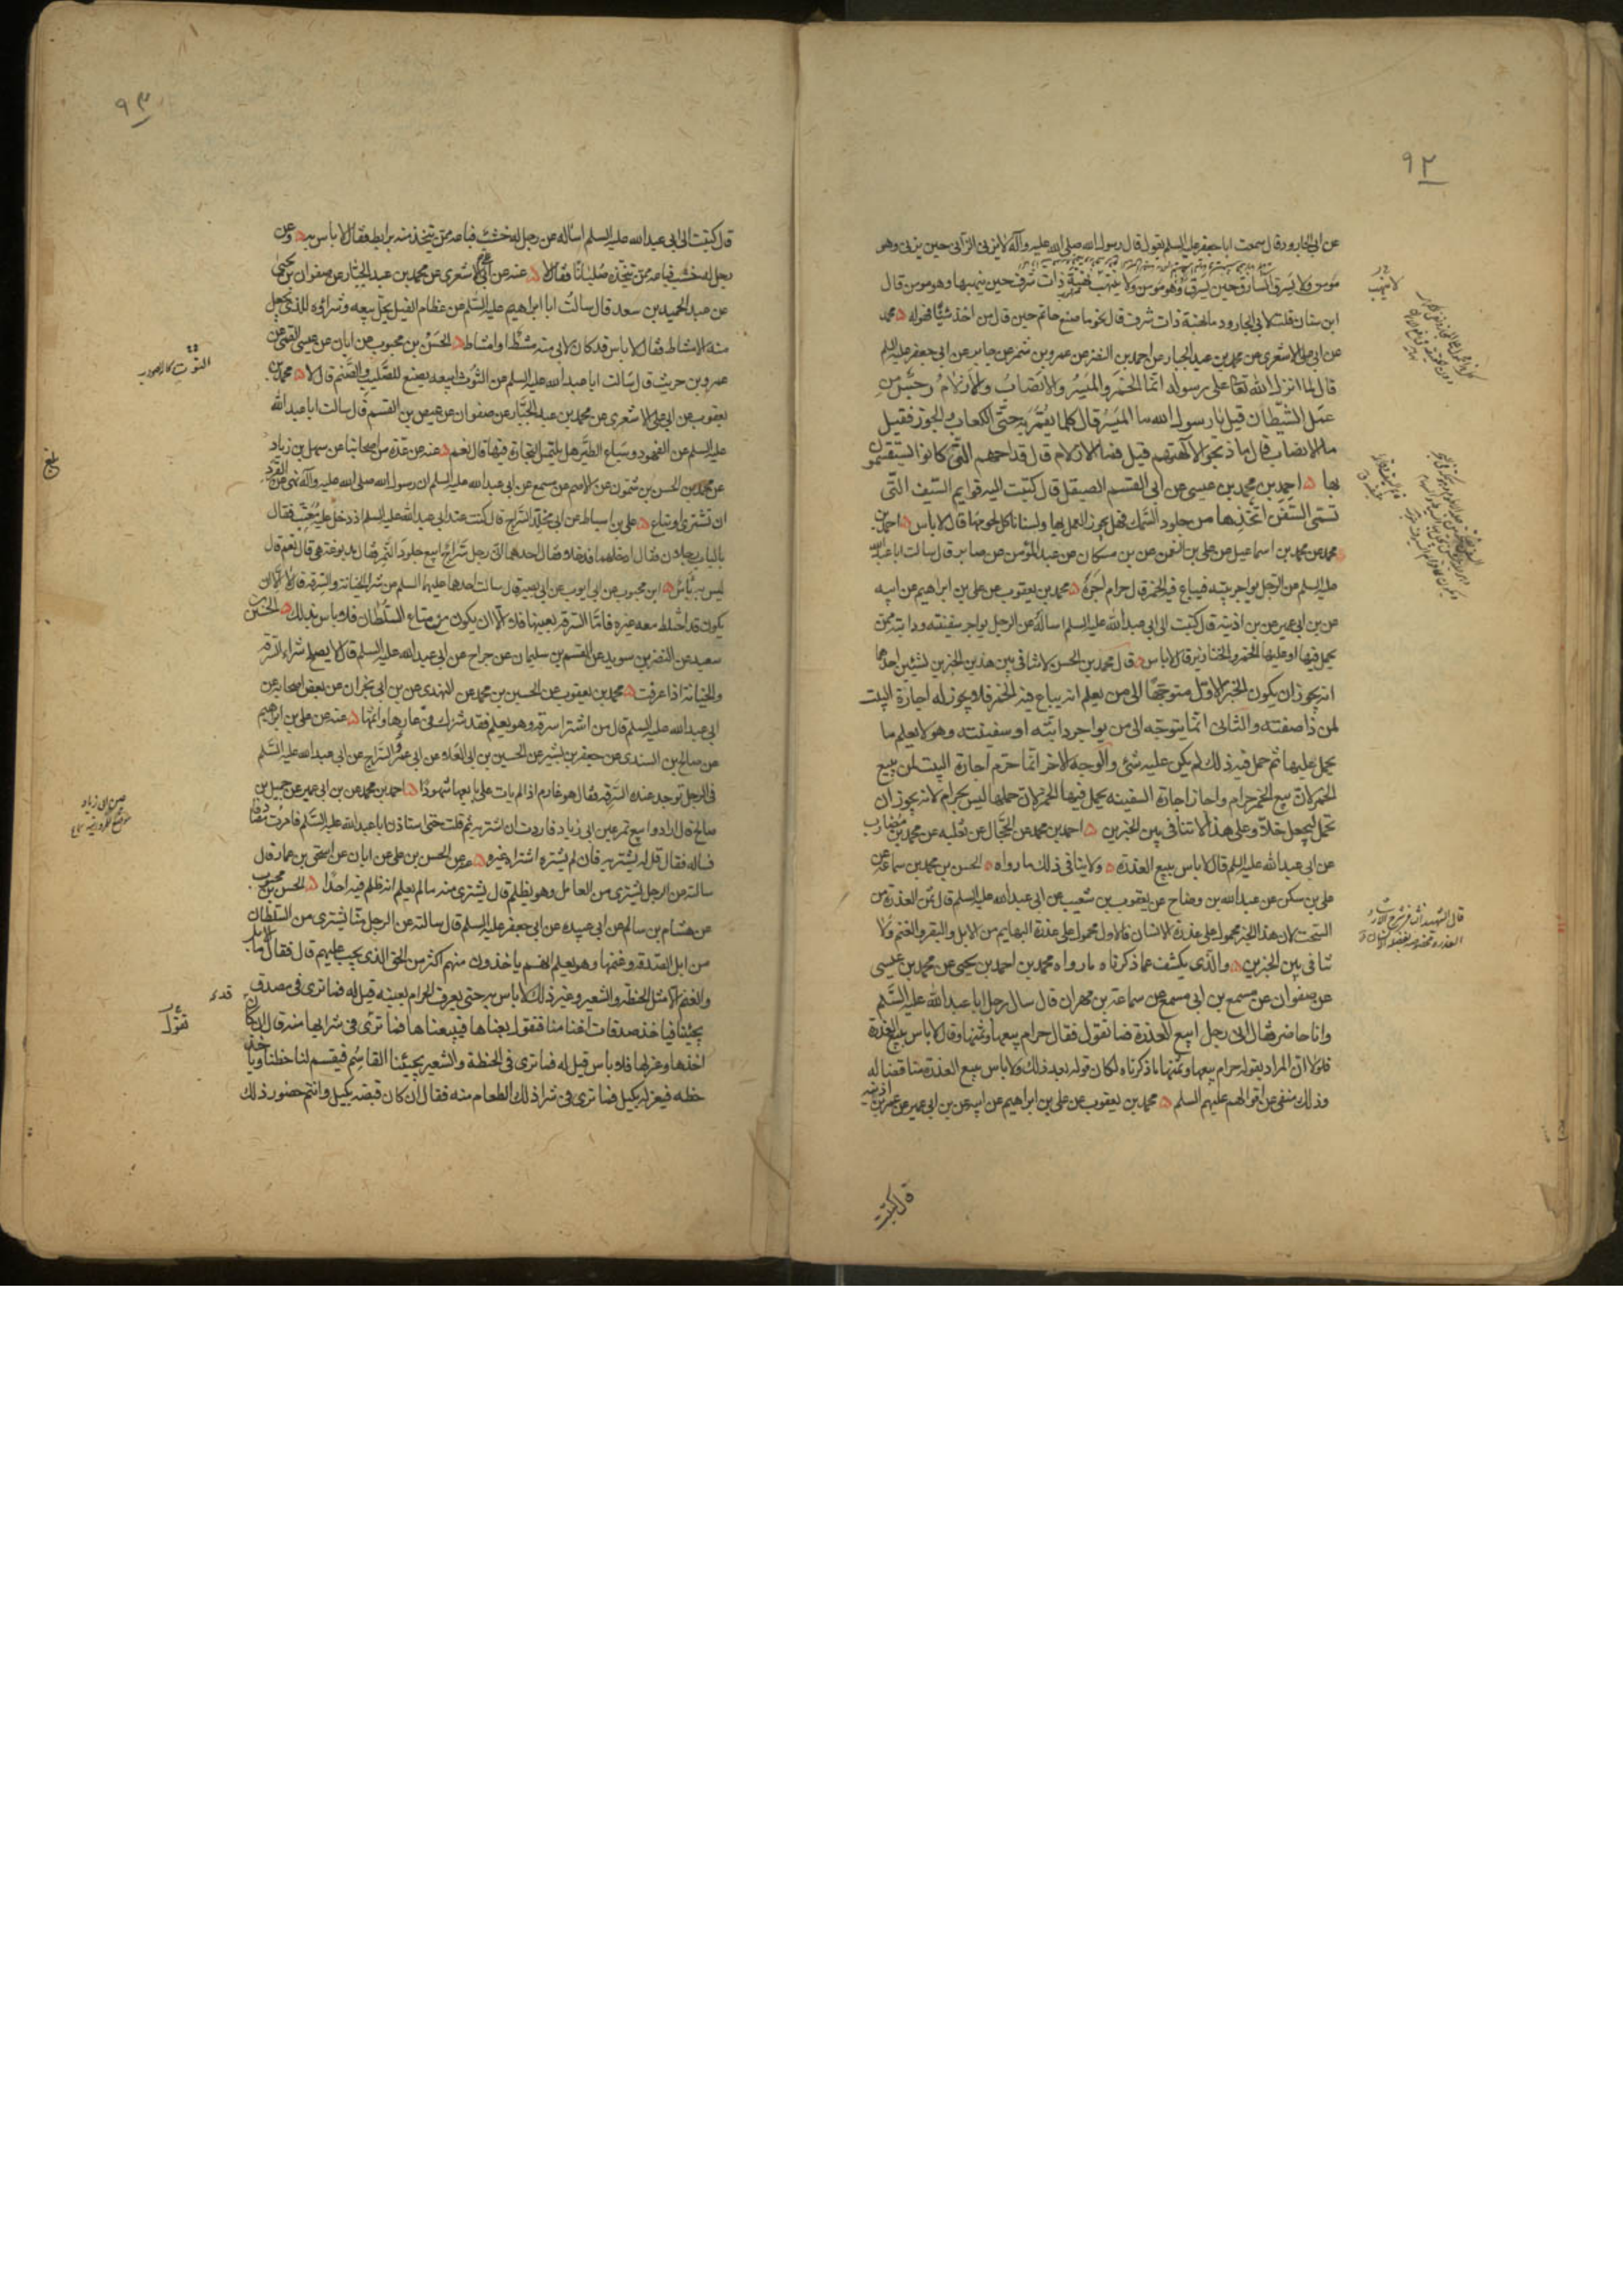 ٩٢
عن ابى الجارود قال سمعت ابا جعفر عليه السلم يقول قال رسول الله صلى الله عليه وآله لا يزنى الزانى حين يزنى وهو
مؤمن ولا يسرق السارق حين يسرق وهو مؤمن ولا ينتهب نهبة ذات شرف حين ينهبها وهو مومن قال
ابن سنان قلت لابى الجارود ما نهبة ذات شرف قال نحو ما صنع حاتم حين قال من اخذ شيئا فهو له محمد
عن ابى على الاشعرى عن محمد بن عبد الجبار عن احمد بن النضر عن عمرو بن شمر عن جابر عن ابى جعفر عليه السلم
قال لما انزل الله تعا على رسوله انما الخمر والميسر والانصاب والازلام رجس من
عمل الشيطان قيل يا رسول الله ما الميسر قال كلما يقمر به حتى الكعاب والجوز فقيل
ما الانصاب قال ما ذبحوا لآلهتهم قيل فما الازلام قال قداحهم التى كانوا يستقسمون
بها احمد بن محمد بن عيسى عن ابى القسم الصيقل قال كتبت اليه قوايم السيف التى
تسمى السفن اتخذها من جلود السمك فهل يجوز العمل بها ولسنا ناكل لحومها قال لا باس احمد بن
محمد عن محمد بن اسماعيل عن على بن النعمن عن بن مسكان عن عبد المؤمن عن صابر قال سالت ابا عبد الله
عليه السلم عن الرجل يواجر بيته فيباع فيه الخمر قال حرام اجره محمد بن يعقوب عن على بن ابراهيم عن ابيه
عن بن ابى عمير عن بن اذينة قال كتبت الى ابى عبد الله عليه السلم اساله عن الرجل يواجر سفينته ودابته ممن
يحمل فيها او عليها الخمر والخنازير قال لا باس قال محمد بن الحسن لا تنافى بين هذين الخبرين لشيئين احدهما
انه يجوز ان يكون الخبر الاول متوجها الى من يعلم انه يباع فيه الخمر فلا يجوز له اجارة البيت
لمن ذا صفته والثانى انما يتوجه الى من يواجر دابته او سفينته وهو لا يعلم ما
يحمل عليها ثم حمل فيه ذلك لم يكن عليه شئ والوجه الاخر انما حرم اجارة البيت لمن يبيع
الخمر لان بيع الخمر حرام واجاز اجارة السفينه يحمل فيها الخمر لان حملها ليس بحرام لانه يجوز ان
تحمل ليجعل خلا وعلى هذا لا تنافى بين الخبرين احمد بن محمد عن الحجال عن ثعلبه عن محمد بن مضارب
عن ابى عبد الله عليه السلم قال لا باس ببيع العذره ولا ينافى ذلك ما رواه الحسن بن محمد بن سماعة عن
على بن سكن عن عبد الله بن وضاح عن يعقوب بن شعيب عن ابى عبد الله عليه السلم قال ثمن العذرة من
السحت لان هذا الخبر محمول على عذرة الانسان والاول محمول على عذرة البهايم من الابل والبقر والغنم ولا
تنافى بين الخبرين والذى يكشف عما ذكرناه ما رواه محمد بن احمد بن يحيى عن محمد بن عيسى
عن صفوان عن مسمع بن ابى مسمع عن سماعة بن مهران قال سال رجل ابا عبد الله عليه السلم
وانا حاضر فقال انى رجل ابيع العذرة فما تقول فقال حرام بيعها وثمنها وقال لا باس ببيع العذرة
فلولا ان المراد بقوله حرام بيعها وثمنها ما ذكرناه لكان قوله بعد ذلك ولا باس ببيع العذرة مناقضا له
وذلك منفى عن اقوالهم عليهم السلم محمد بن يعقوب عن على بن ابراهيم عن ابيه عن بن ابى عمير عن عمر بن اذينه
قال كتبت
٩٣
قال كتبت الى ابى عبد الله عليه السلم اساله عن رجل له خشب فباعه ممن يتخذ منه برابط فقال لا باس به وعن
رجل له خشب فباعه ممن يتخذه صلبانا فقال لا عنه عن ابى على الاشعرى عن محمد بن عبد الجبار عن صفوان بن يحيى
عن عبد الحميد بن سعد قال سالت ابا ابراهيم عليه السلم عن عظام الفيل يحل بيعه وشراؤه للذى يجعل
منه الامشاط فقال لا باس قد كان لابى منه مشط او امشاط الحسن بن محبوب عن ابان عن عيسى القمى عن
عمرو بن حريث قال سالت ابا عبد الله عليه السلم عن التوت ابيعه يصنع للصليب والصنم قال لا محمد بن
يعقوب عن ابى على الاشعرى عن محمد بن عبد الجبار عن صفوان عن عيص بن القسم قال سالت ابا عبد الله
عليه السلم عن الفهود وسباع الطير هل يلتمس التجارة فيها قال نعم عنه عن عدة من اصحابنا عن سهل بن زياد
عن محمد بن الحسن بن شمون عن الاصم عن مسمع عن ابى عبد الله عليه السلم ان رسول الله صلى الله عليه وآله نهى عن القرد
ان تشترى او تباع على بن اسباط عن ابى مخلد السراج قال كنت عند ابى عبد الله عليه السلم اذ دخل عليه معتب فقال
بالباب رجلان فقال ادخلهما فدخلا فقال احدهما انى رجل سراج ابيع جلود النمر فقال مدبوغة هى قال نعم قال
ليس به باس ابن محبوب عن ابى ايوب عن ابى بصير قال سالت احدهما عليهما السلم عن شرا الخيانة والسرقة قال لا الا ان
يكون قد اختلط معه غيره فاما السرقه بعينها فلا الا ان يكون من متاع السلطان فلا باس بذلك الحسين بن
سعيد عن النضر بن سويد عن القسم بن سليمان عن جراح عن ابى عبد الله عليه السلم قال لا يصلح شراء السرقه
والخيانة اذا عرفت محمد بن يعقوب عن الحسين بن محمد عن النهدى عن بن ابى نجران عن بعض اصحابه عن
ابى عبد الله عليه السلم قال من اشترا سرقه وهو يعلم فقد شرك فى عارها واثمها عنه عن على بن ابراهيم
عن صالح بن السندى عن جعفر بن بشير عن الحسين بن ابى العلاء عن ابى عمر السراج عن ابى عبد الله عليه السلم
فى الرجل توجد عنده السرقه فقال هو غارم اذا لم يات على بايعها شهودا احمد بن محمد عن بن ابى عمير عن جميل بن
صالح قال ارادوا بيع تمر عين ابى زياد فاردت ان اشتريه ثم قلت حتى استاذن ابا عبد الله عليه السلم فامرت مصادفا
فساله فقال قل له يشتريه فان لم يشتره اشتراه غيره عنه عن الحسن بن على عن ابان عن اسحق بن عمار قال
سالته عن الرجل يشترى من العامل وهو يظلم قال يشترى منه ما لم يعلم انه ظلم فيه احدا الحسن بن محبوب
عن هشام بن سالم عن ابى عبيده عن ابى جعفر عليه السلم قال سالته عن الرجل منا يشترى من السلطان
من ابل الصدقه وغنمها وهو يعلم انهم ياخذون منهم اكثر من الحق الذى يجب عليهم قال فقال ما الابل
والغنم الا مثل الحنطه والشعير وغير ذلك لا باس به حتى يعرف الحرام بعينه قيل له فما ترى فى مصدق
يجيئنا فياخذ صدقات اغنامنا فنقول بعناها فيبيعناها فما ترى فى شرائها منه قال ان كان قد
اخذها وعزلها فلا باس قيل له فما ترى فى الحنطة والشعير يجيئنا القاسم فيقسم لنا حظنا وياخذ
حظه فيعزله بكيل فما ترى فى شرا ذلك الطعام منه فقال ان كان قبضه بكيل وانتم حضور ذلك